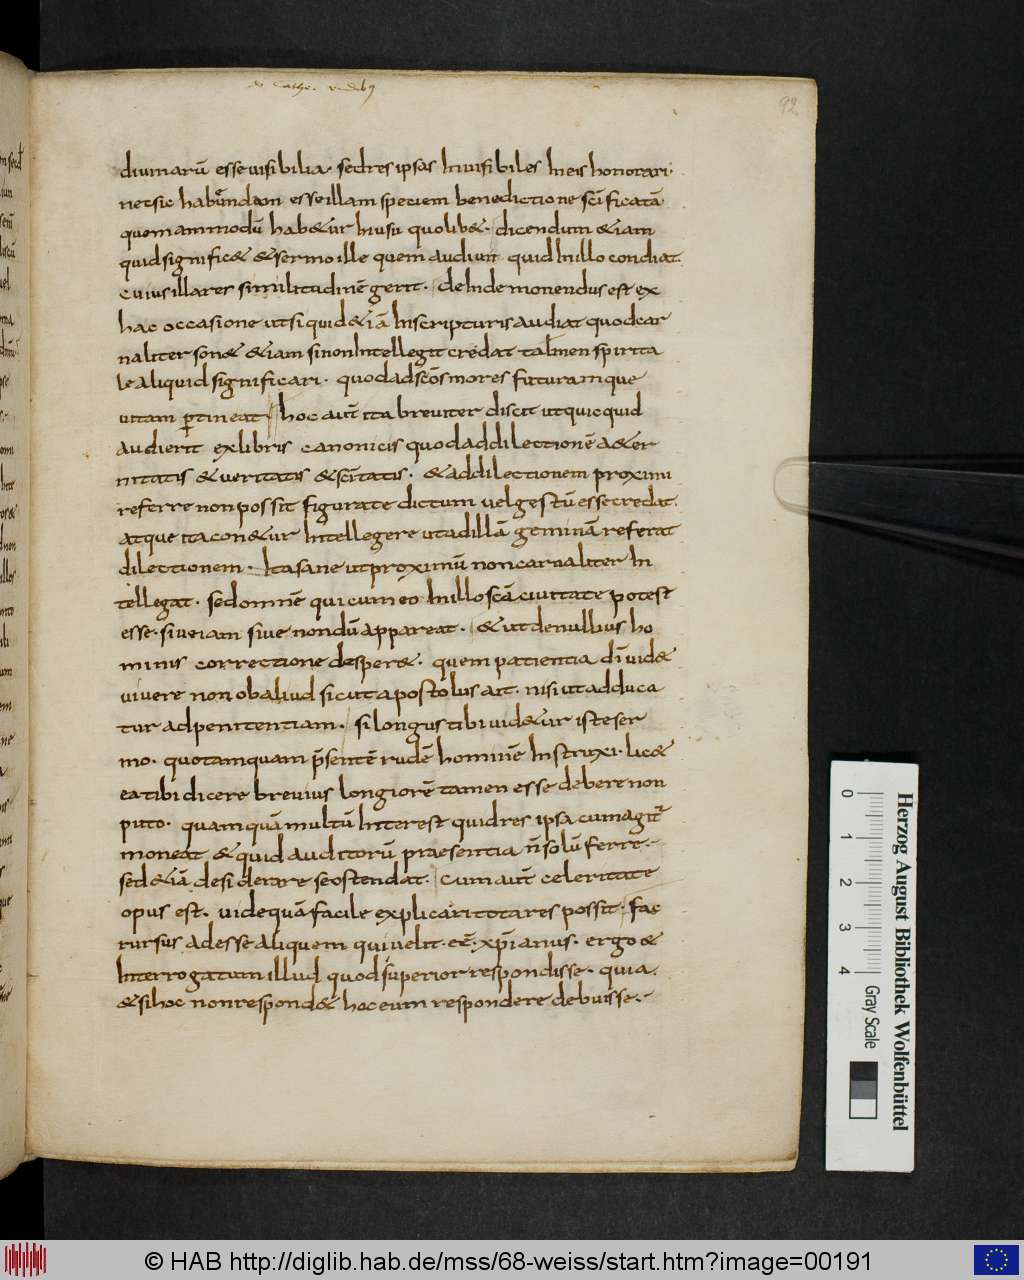 92
diuinarū esse uisibilia· sed res ipsas Inuisibiles In eis honorari·
nec sic habendam esse illam speciem benedictione scīficatā
quem ammodū hab&ur In usu quolib&· dicendum &iam
quid signific& & sermo ille quem audiuit quid In illo condiat·
cuius illa res similitudinē gerit· deInde monendus est ex
hac occasione ut si quid &iā Inscripturis audiat quod car
naliter son& &iam si non Intellegit credat tamen spirita
le aliquid significari· quod ad scōs mores futuramque
uitam ptineat· hoc aut̄ ita breuiter discit ut quicquid
audierit ex libris canonicis quod ad dilectionē a&er
nitatis & ueritatis & sci̅tatis· & ad dilectionem proximi
referre non possit figurate dictum uel gestū esse credat·
atque ita con&ur Intellegere ut ad illā geminā referat
dilectionem· Ita sane ut proximū non carnaliter In
tellegat· sed omnē qui cum eo In illo scā ciuitate potest
esse· siue iam siue nondū appareat· & ut de nullius ho
minis correctione desper&· quem patientia dī uid&
uiuere non ob aliud sicut apostolus ait· nisi ut adduca
tur ad penitentiam· si longus tibi uid&ur iste ser
mo· quo tamquam p̄sentē rudē hominē Instruxi· lic&
ea tibi dicere breuius longiorē tamen esse debere non
puto· quamquā multū Interest quid res ipsa cum agit̄
moneat & quid auditorū praesentia n̄ solū ferre·
sed &iā desiderare se ostendat· cum aut̄ celeritate
opus est· uide quā facile explicari tota res possit· fac
rursus adesse aliquem qui uelit· eē· xp̄ianus· ergo &
Interrogatum illud quod superior respondisse· quia·
& si hoc non respond& hoc eum respondere debuisse·
Herzog August Bibliothek Wolfenbüttel
0 1 2 3 4 Gray Scale
© HAB http://diglib.hab.de/mss/68-weiss/start.htm?image=00191